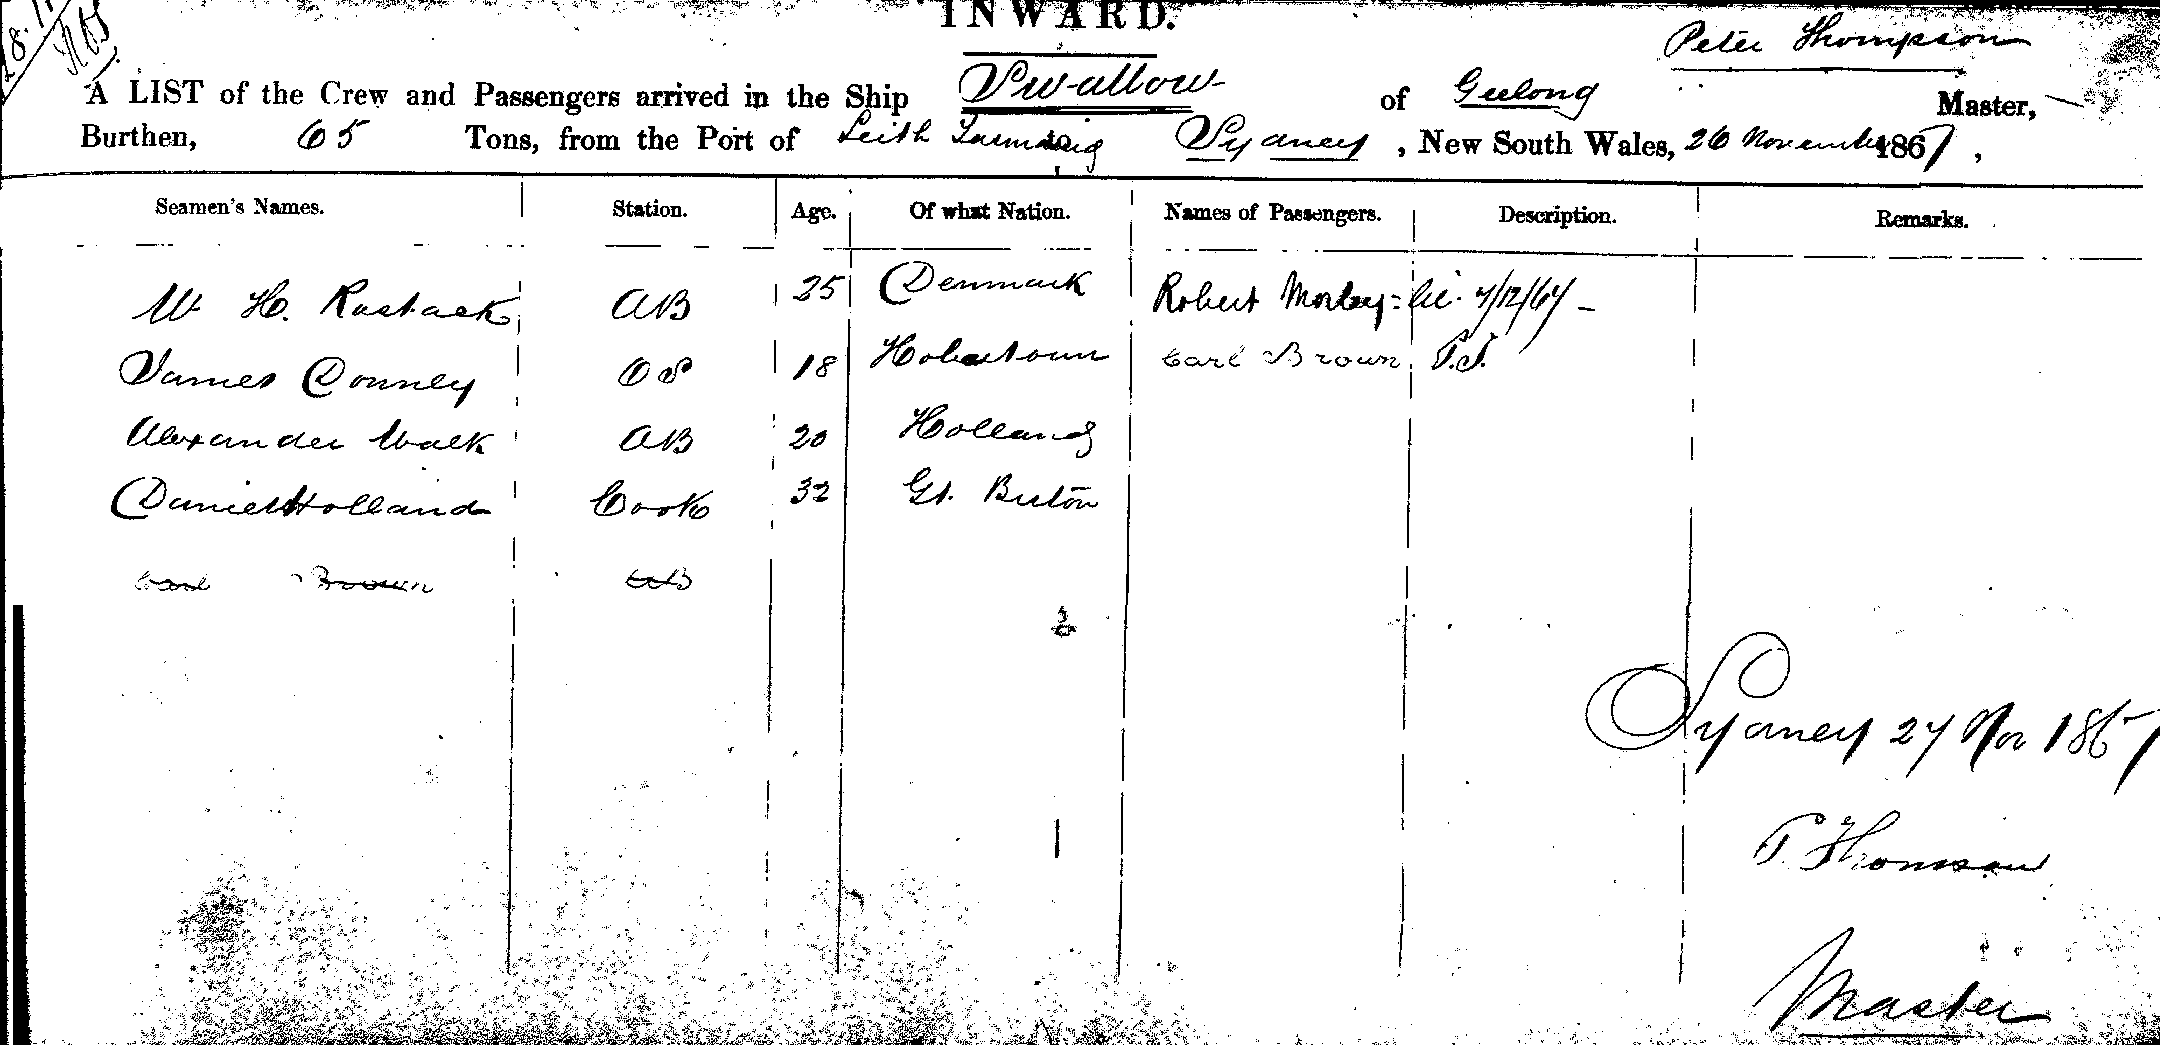 INWARD.
Peter Thompson
A LIST of the Crew and Passengers arrived in the Ship Swallow of Geelong Master,
Burthen, 65 Tons, from the Port of Leith Tasmania to Sydney, New South Wales, 26 November 1867,
Seamen's Names. Station. Age. Of what Nation. Names of Passengers. Description. Remarks.
W. H. AB 25 Denmark Robert Morley
James Conney OS 18 Hobartown Carl Brown
Alexander Walk AB 20 Holland
Daniel Holland Cook 32 Gt. Briton
Carl Brown AB
Sydney 27 Nov 1867
P. Thomson
Master